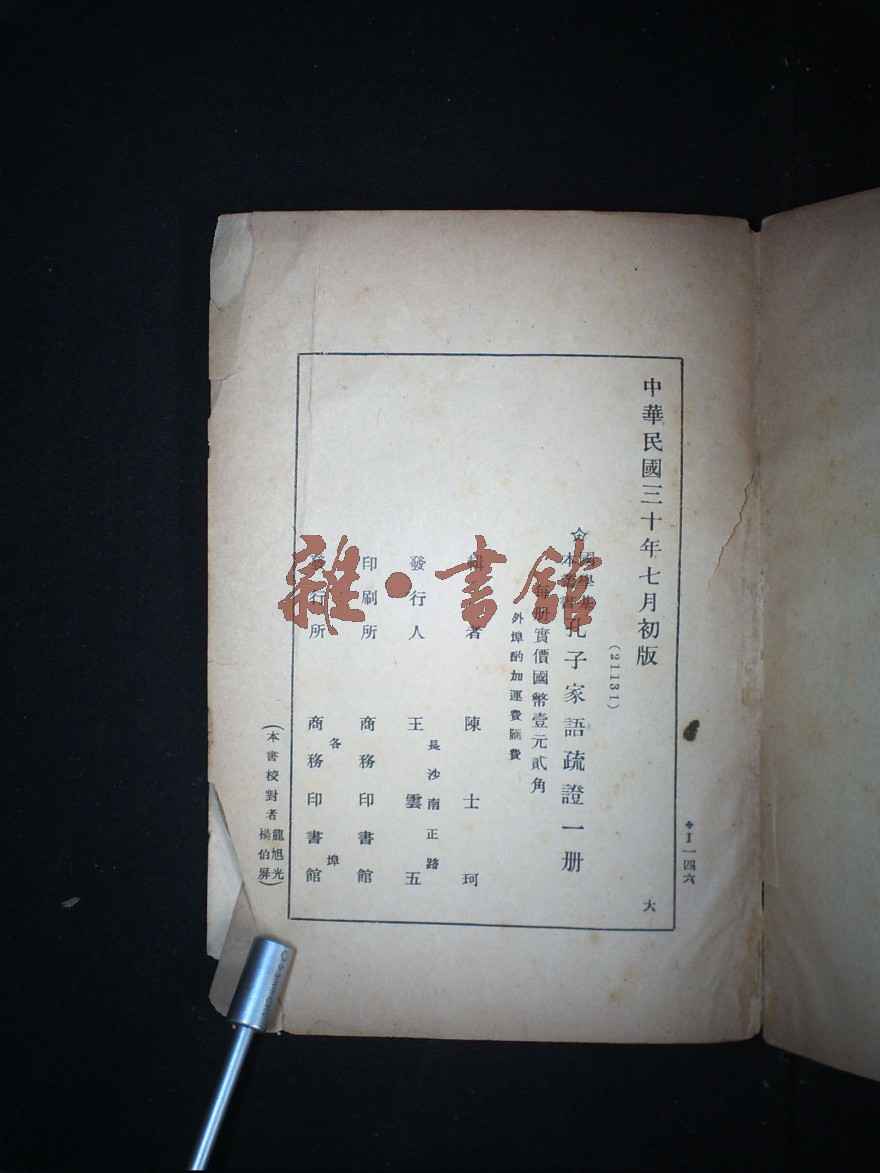 中華民國三十年七月初版
(21131)
國學基
本叢書
孔子家語疏證一册
每册實價國幣壹元貳角
外埠酌加運費匯費
輯者 陳士珂
發行人 王雲五
長沙南正路
印刷所 商務印書館
發行所 商務印書館
各埠
(本書校對者 龍旭光
楊伯屏)
大
I一四六
雜·書館